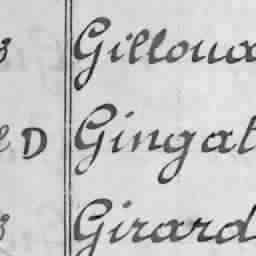 Gilloux
D Gingat
Girard